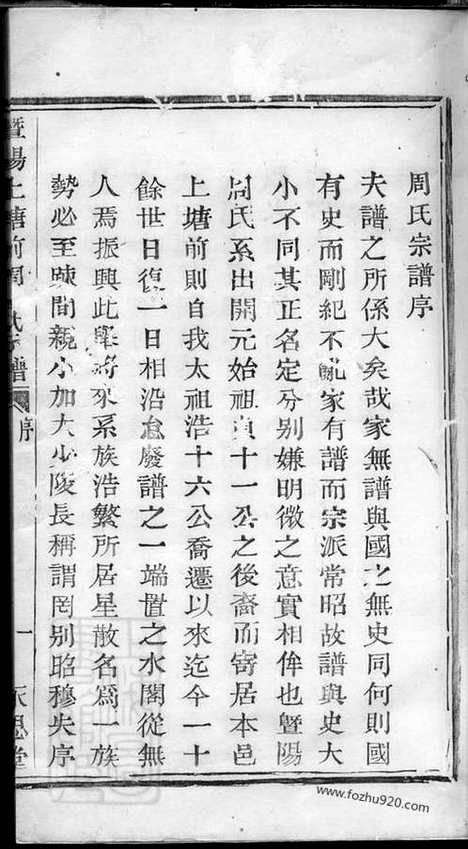 周氏宗譜序
夫譜之所係大矣哉家無譜與國之無史同何則國
有史而剛紀不亂家有譜而宗派常昭故譜與史大
小不同其正名定分别嫌明微之意實相侔也暨陽
周氏系出開元始祖貞十一公之後裔而寄居本邑
上塘前則自我太祖浩十六公喬遷以來迄今一十
餘世日復一日相沿怠廢譜之一端置之水閣從無
人焉振興此舉將來系族浩繁所居星散名爲一族
勢必至踈間親小加大少陵長稱謂罔别昭穆失序
暨陽上塘前周氏宗譜 序 一 永思堂
www.fozhu920.com